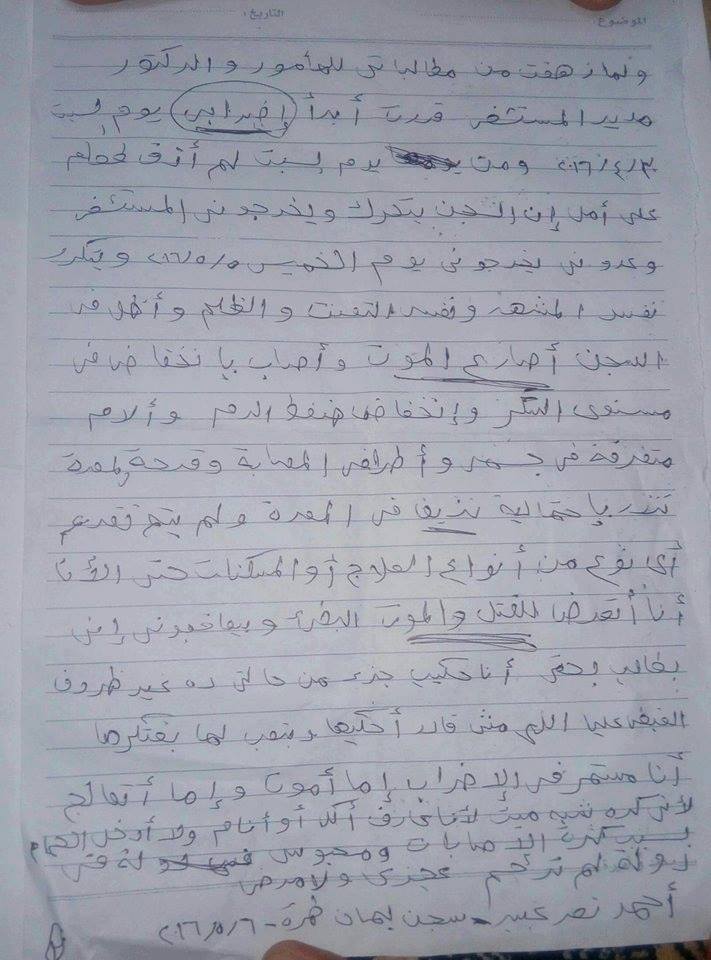 الموضوع: التاريخ:
ولما زهقت من مطالباتي للمأمور والدكتور
مدير المستشفى قررت أبدأ إضرابي يوم السبت
٢٠١٦/٤/٣٠ ومن يوم السبت لم أذق الطعام
على أمل إن السجن يتحرك ويخرجوني المستشفى
وعدوني يخرجوني يوم الخميس ٢٠١٦/٥/٥ ويتكرر
نفس المشهد ونفس التعنت والظلم وأظل في
السجن أصارع الموت وأصاب بإنخفاض في
مستوى السكر وإنخفاض ضغط الدم وألام
متفرقة في جسمي وأطرافي المصابة وقرحة المعدة
تنذر بإحتمالية نزيف في المعدة ولم يتم تقديم
أي نوع من أنواع العلاج أو المسكنات حتى الأن
أنا أتعرض للقتل والموت البطئ وبيعاقبوني إني
بطالب بحقي أنا حكيت جزء من حالتي ده غير ظروف
القبض عليا اللي مش قادر أحكيها وبتعب لما بفتكرها
أنا مستمر في الإضراب إما أموت وإما أتعالج
لأني كده شبه ميت لأني مش عارف أكل أو أنام ولا أدخل الحمام
بسبب كثرة الإصابات ومحبوس في
دولة لم ترحم عجزي ولا مرضي
أحمد نصر عبيد - سجن ليمان طرة - ٢٠١٦/٥/٦